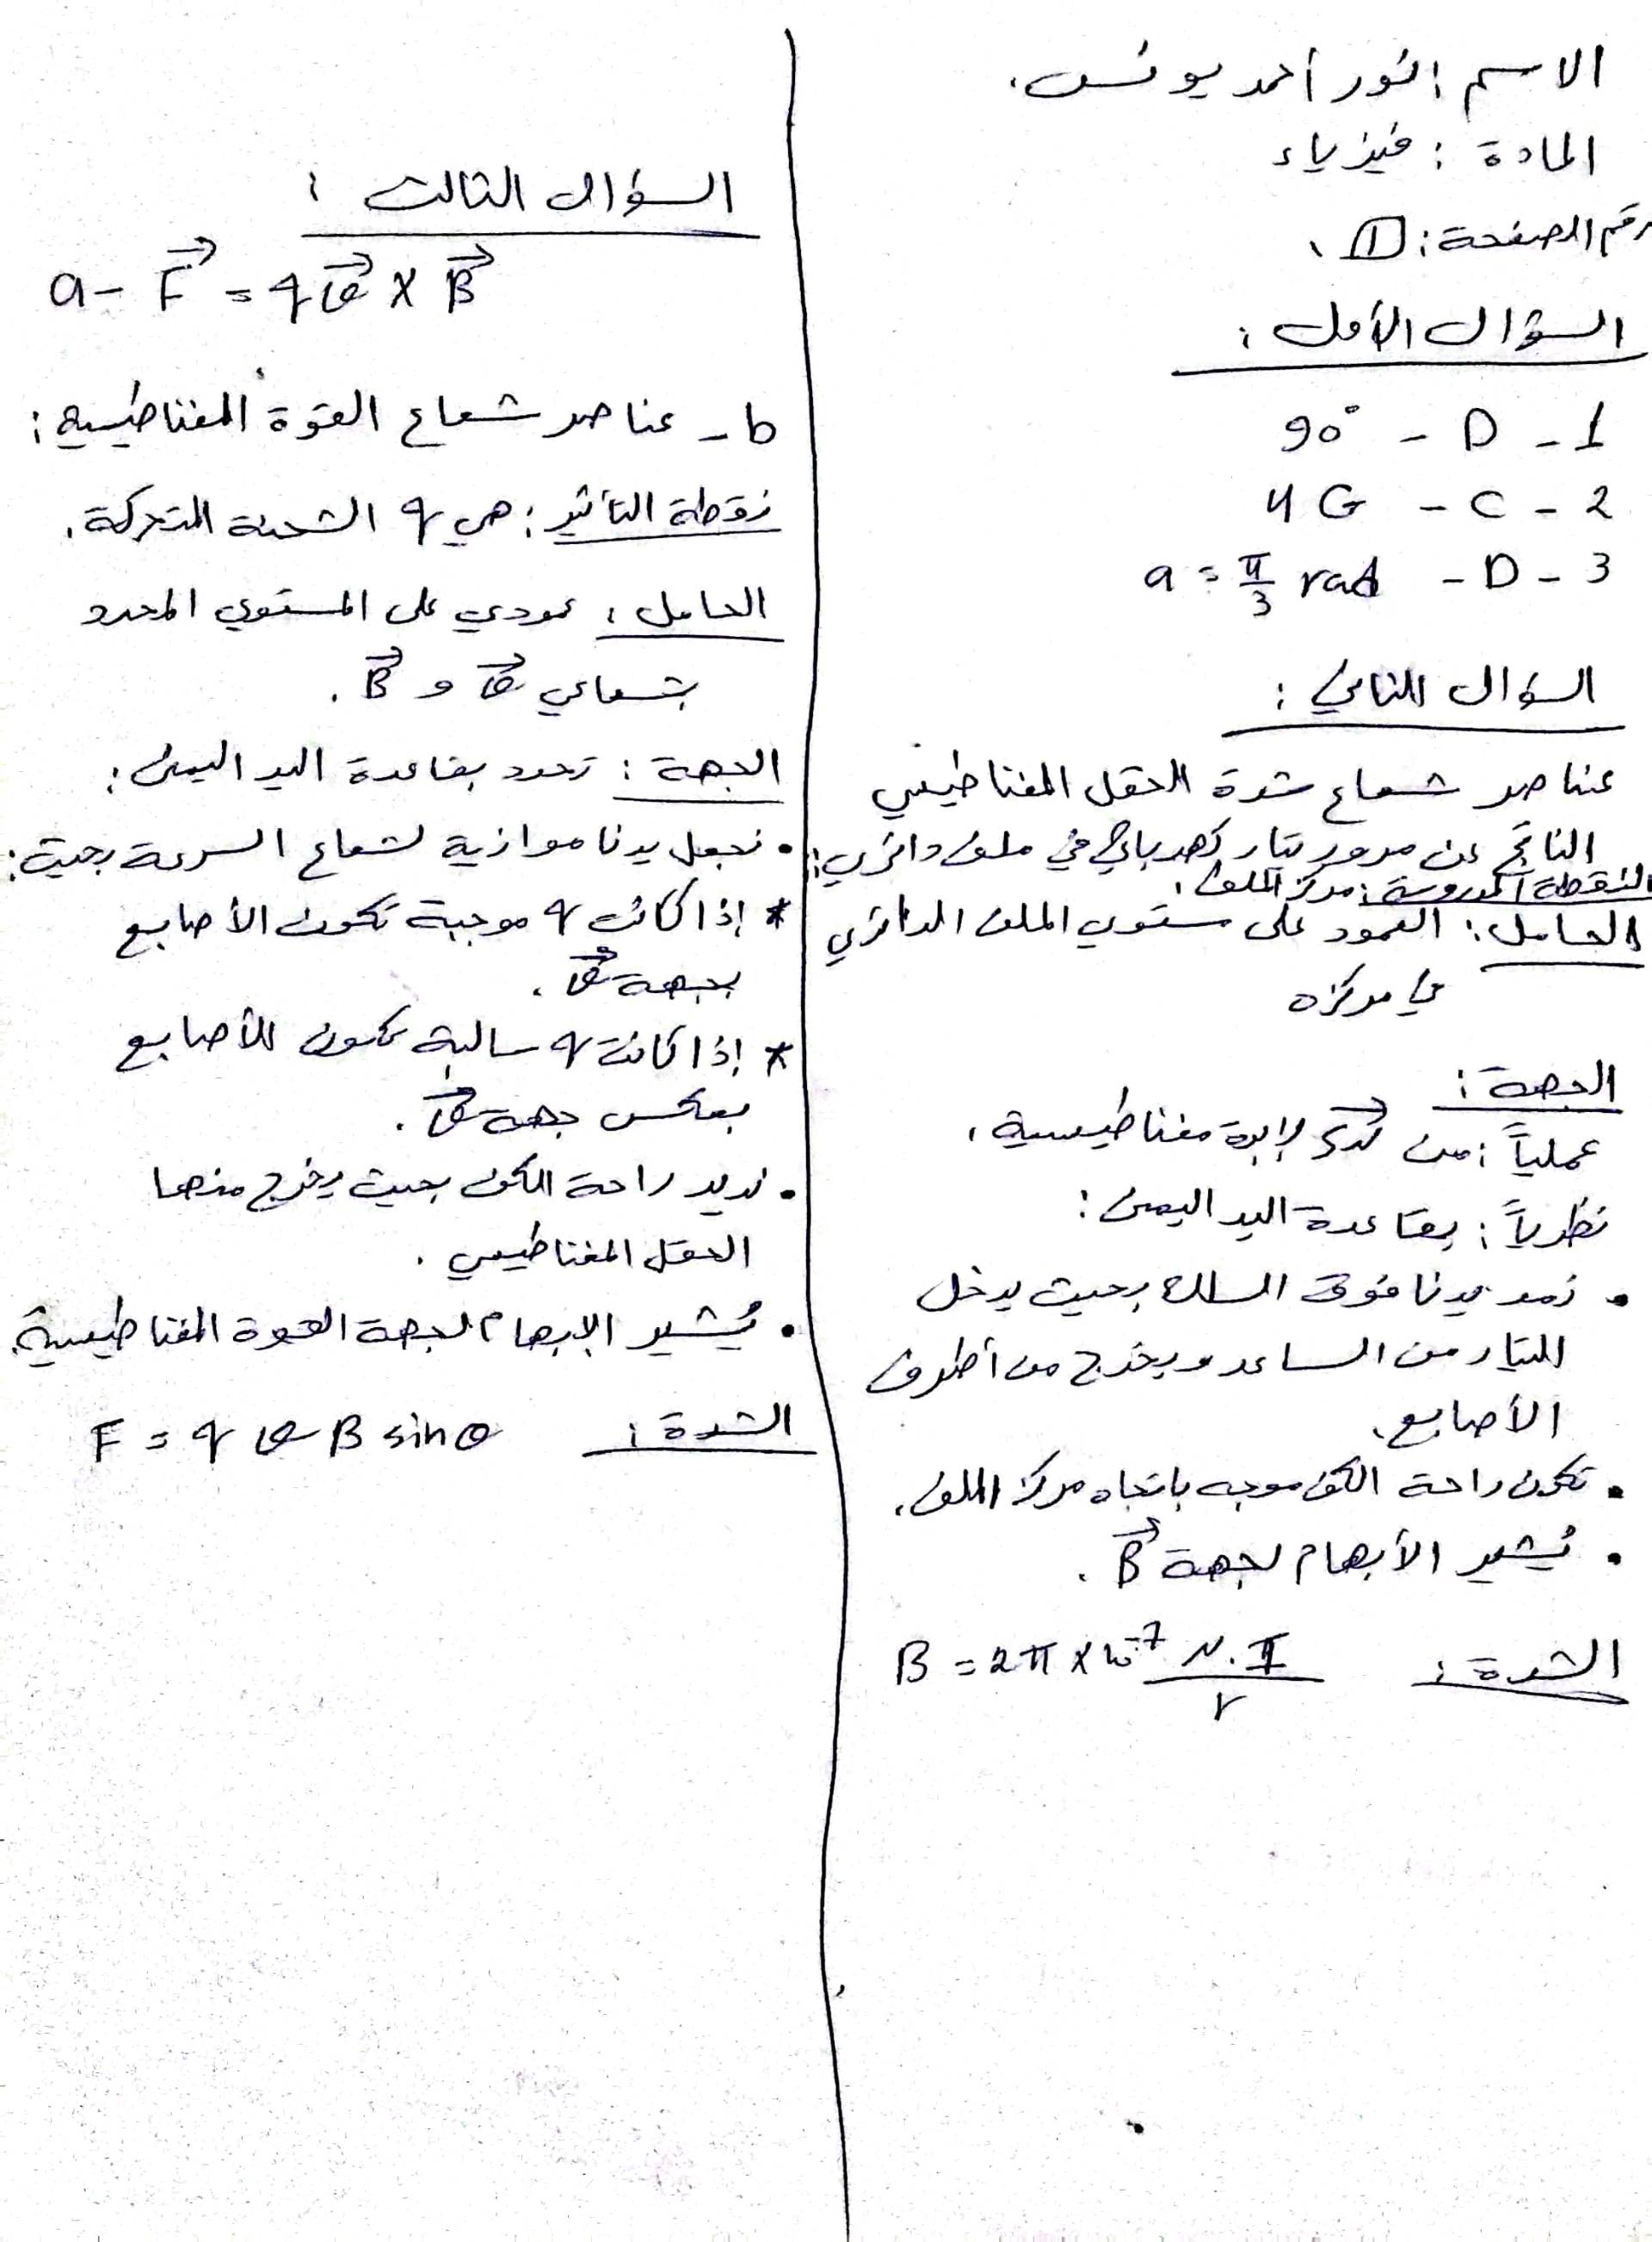 الاسم : انور أحمد يونس.
المادة : فيزياء
رقم الصفحة : 1
السؤال الأول :
1 - D - 90°
2 - C - 4 G
3 - D - a = π/3 rad
السؤال الثاني :
عناصر شعاع شدة الحقل المغناطيسي
الناتج عن مرور تيار كهربائي في ملف دائري :
النقطة المدروسة : مركز الملف .
الحامل : العمود على مستوي الملف الدائري
في مركزه
الجهة :
عملياً : من لإبرة مغناطيسية .
نظرياً : بقاعدة اليد اليمنى :
• نمد يدنا فوق السلك بحيث يدخل
التيار من الساعد ويخرج من أطرف
الأصابع .
• تكون راحة الكف موجه باتجاه مركز الملف .
• يُشير الأبهام لجهة B⃗ .
الشدة : B = 2π × 10⁻⁷ N.I / r
السؤال الثالث :
a - F⃗ = q v⃗ × B⃗
b - عناصر شعاع القوة المغناطيسية :
نقطة التأثير : هي q الشحنة المتحركة .
الحامل : عمودي على المستوي المحدد
بشعاعي v⃗ و B⃗ .
الجهة : تحدد بقاعدة اليد اليمنى :
• نجعل يدنا موازية لشعاع السرعة بحيث :
* إذا كانت q موجبة تكون الأصابع
بجهة v⃗ .
* إذا كانت q سالبة تكون الأصابع
بعكس جهة v⃗ .
• ندير راحة الكف بحيث يخرج منها
الحقل المغناطيسي .
• يُشير الإبهام لجهة القوة المغناطيسية .
الشدة : F = q v B sin θ